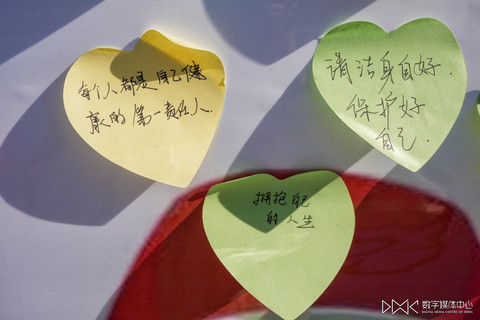 每个人都是自己健
康的第一责任人.
请洁身自好.
保护好
自己.
拥抱自己
的人生
数字媒体中心
DIGITAL MEDIA CENTRE OF